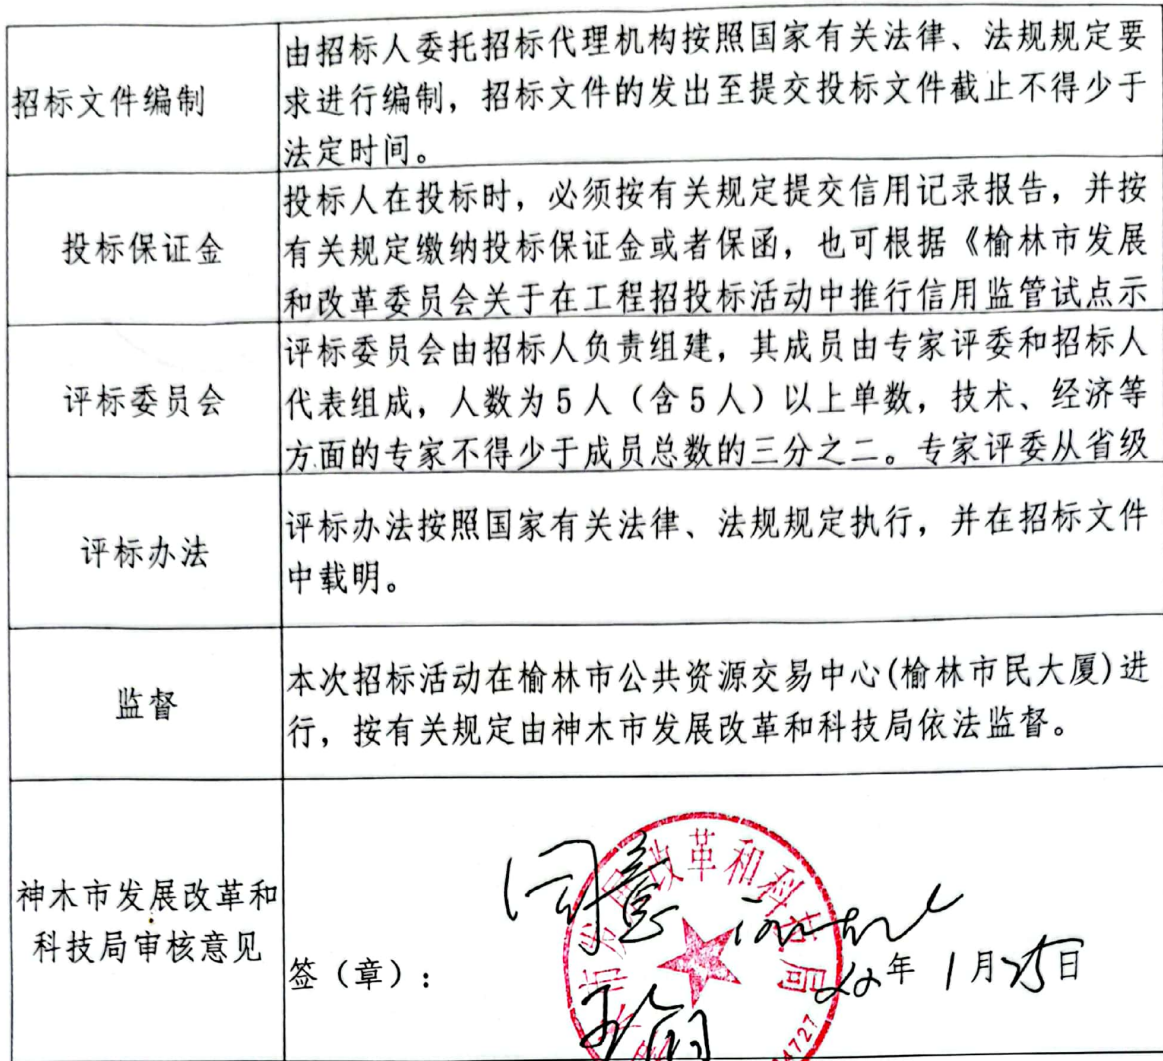 招标文件编制
由招标人委托招标代理机构按照国家有关法律、法规规定要
求进行编制，招标文件的发出至提交投标文件截止不得少于
法定时间。
投标保证金
投标人在投标时，必须按有关规定提交信用记录报告，并按
有关规定缴纳投标保证金或者保函，也可根据《榆林市发展
和改革委员会关于在工程招投标活动中推行信用监管试点示
评标委员会
评标委员会由招标人负责组建，其成员由专家评委和招标人
代表组成，人数为5人（含5人）以上单数，技术、经济等
方面的专家不得少于成员总数的三分之二。专家评委从省级
评标办法
评标办法按照国家有关法律、法规规定执行，并在招标文件
中载明。
监督
本次招标活动在榆林市公共资源交易中心(榆林市民大厦)进
行，按有关规定由神木市发展改革和科技局依法监督。
神木市发展改革和
科技局审核意见
同意
改革和科技局
签（章）：
年 1月25日
4727